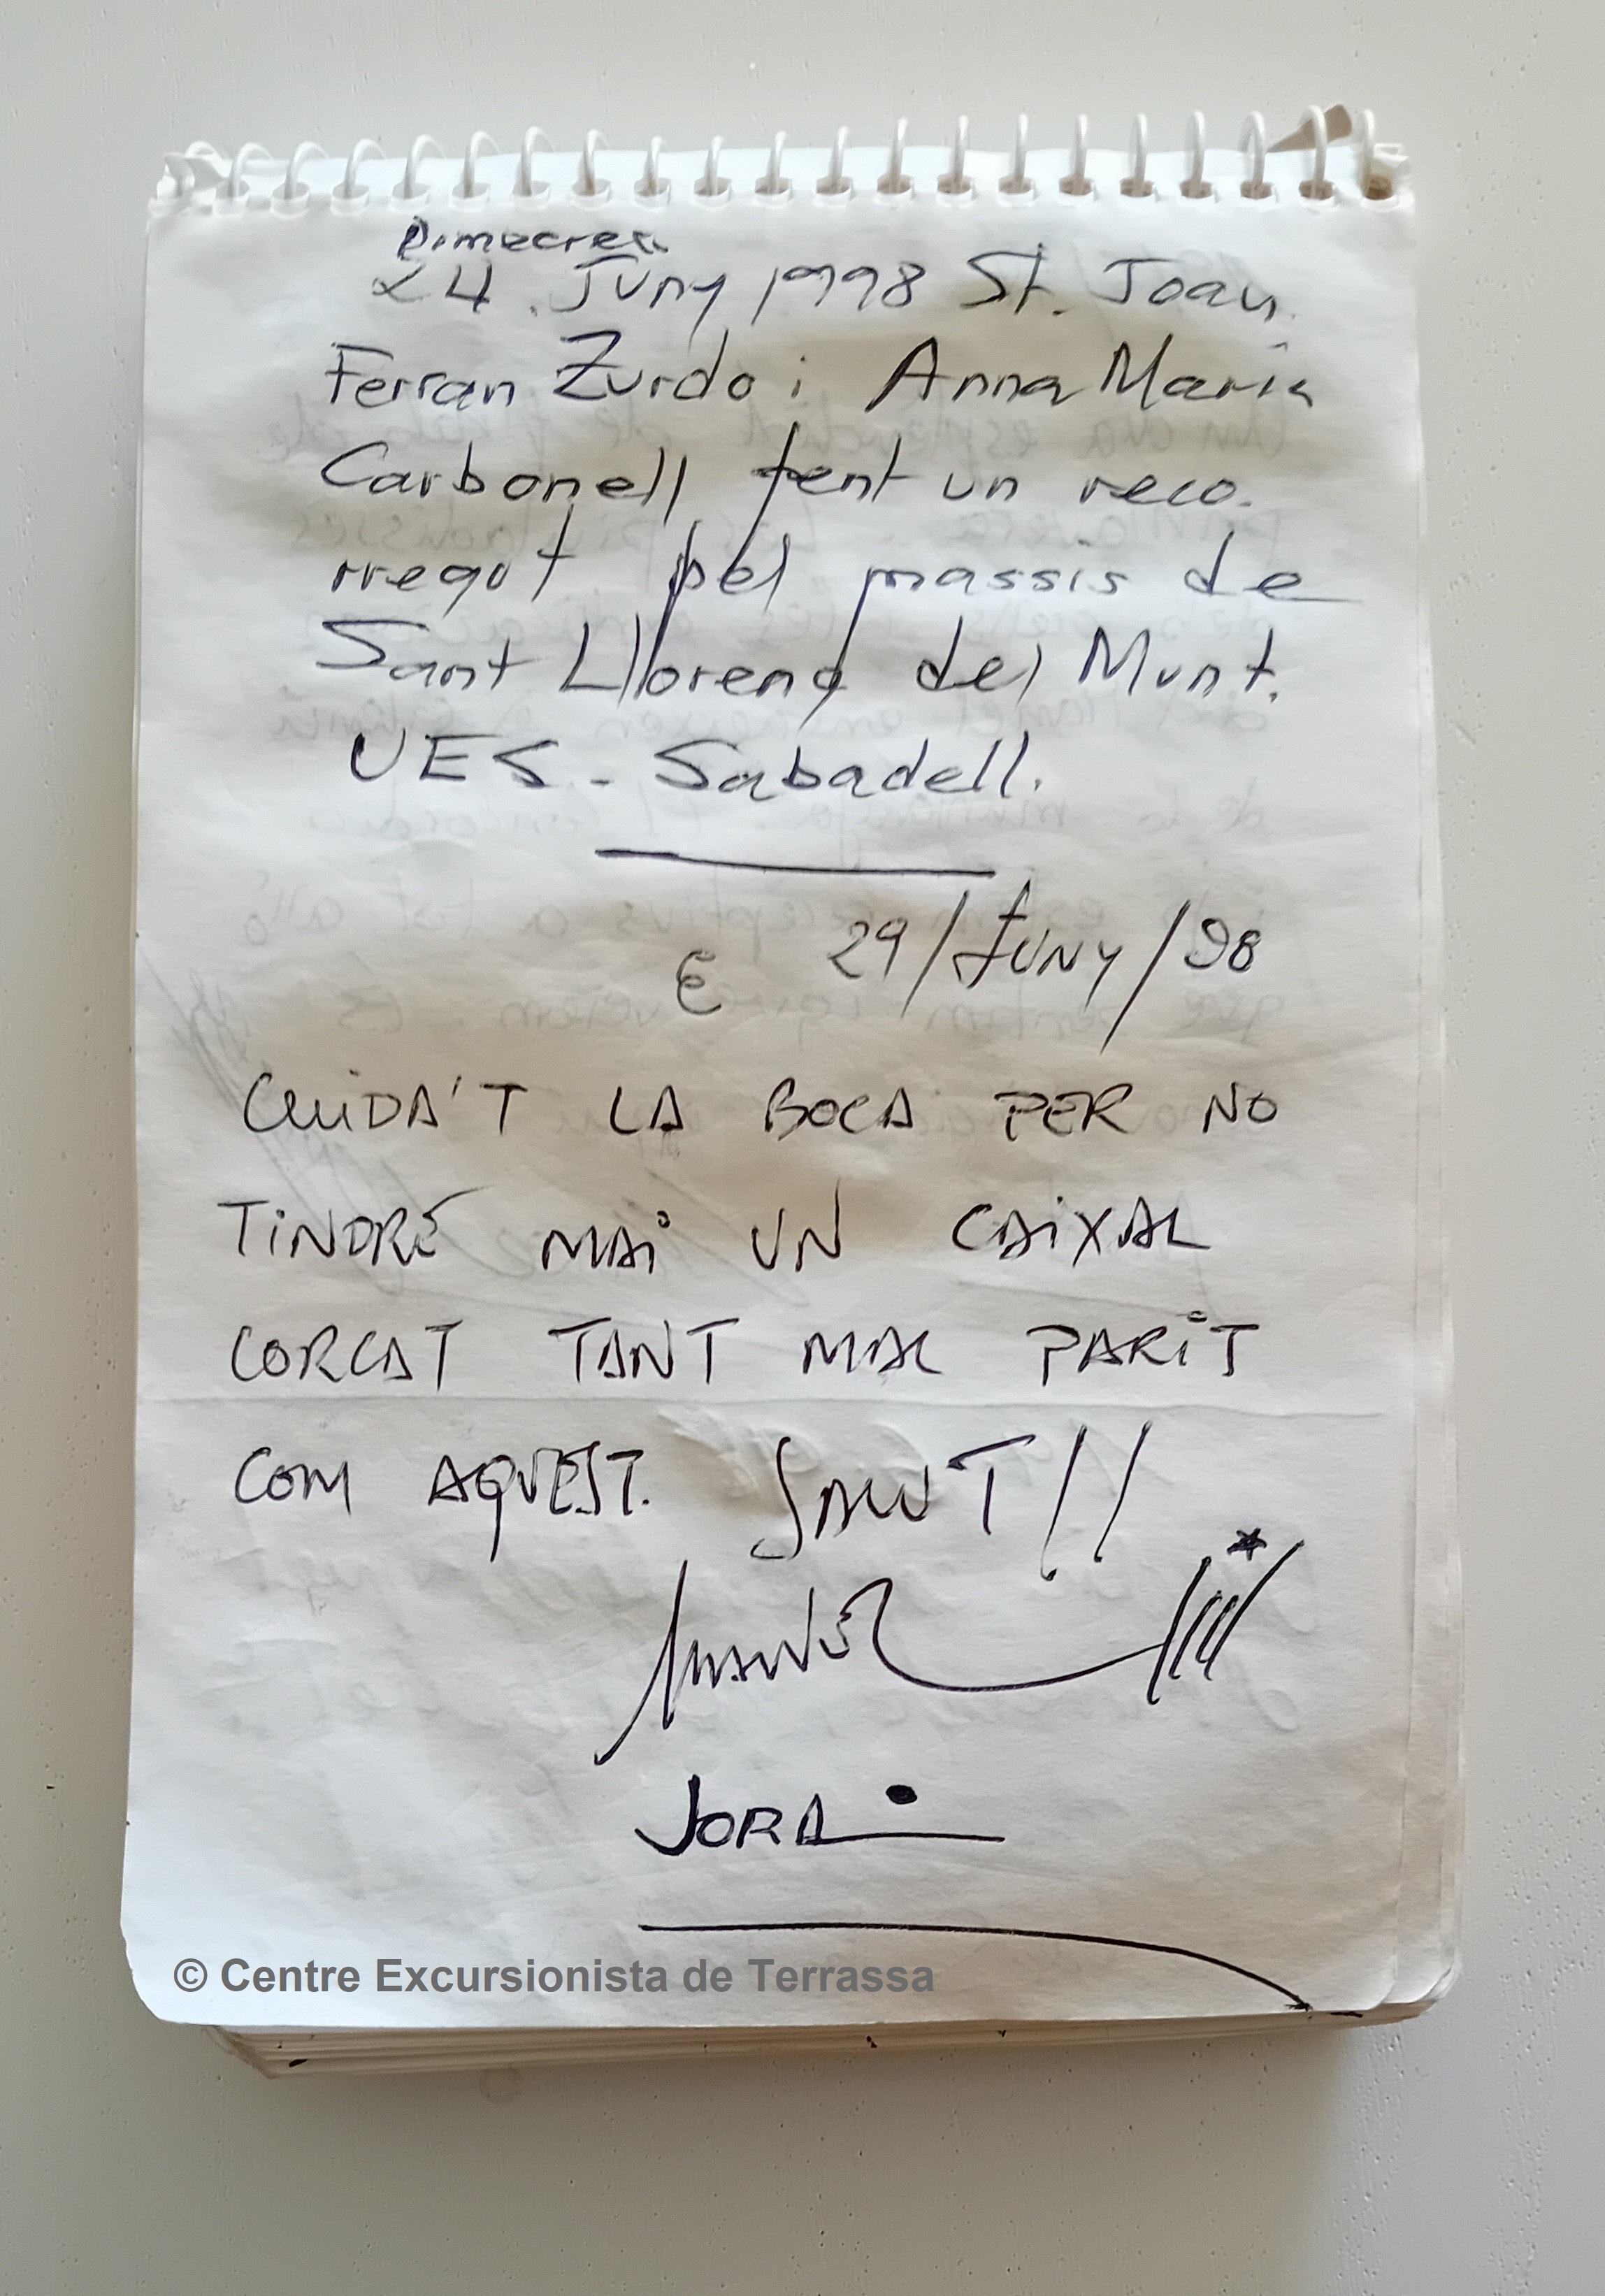 Dimecres
24. Juny 1998 St. Joan.
Ferran Zurdo i Anna Maria
Carbonell fent un reco-
rregut pel massis de
Sant Llorenç del Munt.
UES - Sabadell.
29/JUNY/98
CUIDA'T LA BOCA PER NO
TINDRÉ MAI UN CAIXAL
CORCAT TANT MAL PARIT
COM AQUEST. SALUT!!
MANEL
JORDI
© Centre Excursionista de Terrassa